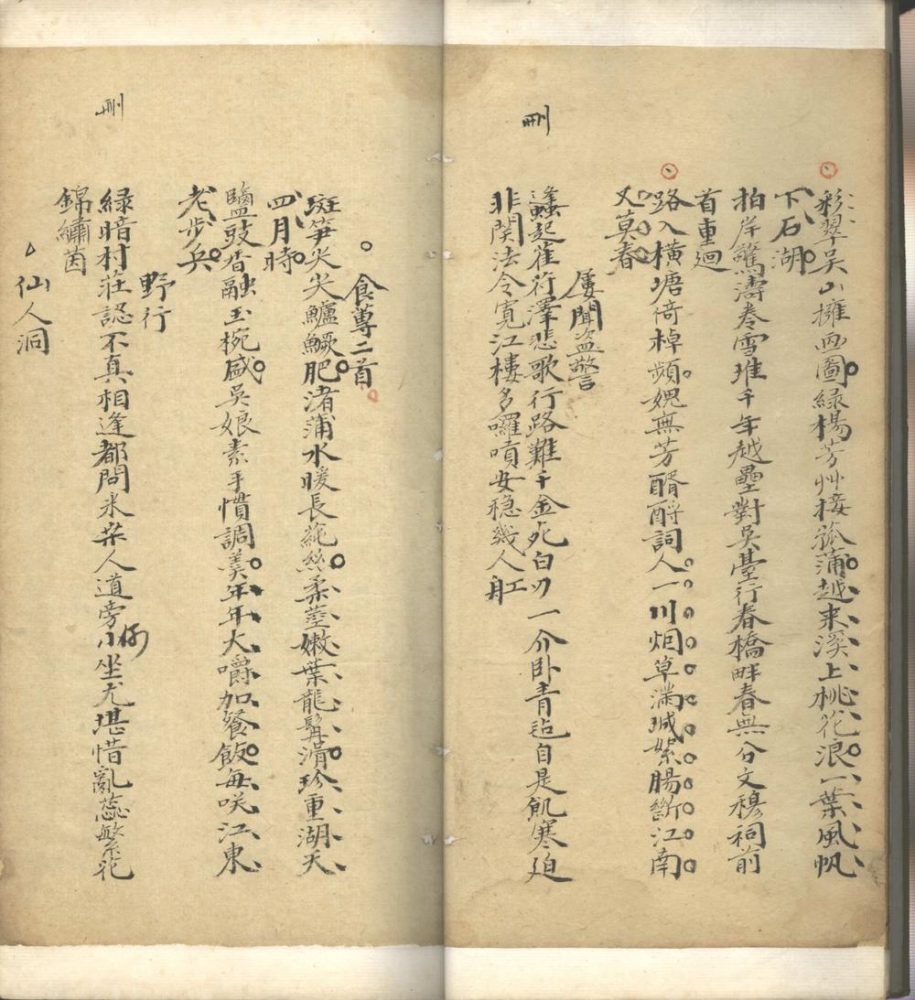 彩翠吳山擁畫圖綠楊芳艸接菰蒲越來溪上桃花浪一葉風帆
下石湖
拍岸驚濤卷雪堆千年越壘對吳臺行春橋畔春無分文穆祠前
首重迴
路入橫塘倚棹頻媿無芳醑酹詞人一川烟草滿城絮腸斷江南
又莫春
屢聞盜警
刪
蠭起萑苻澤悲歌行路難千金死白刃一介臥青氈自是飢寒迫
非関法令寬江樓多囉嗊安穩幾人
食蓴二首
斑筍尖尖鱸鱖肥渚蒲水暖長蒓絲柔莖嫩葉龍髯滑珍重湖天
四月時
鹽豉香融玉椀盛吳娘素手慣調羹年年大嚼加餐飯每咲江東
老步兵
野行
刪
綠暗村莊認不真相逢都問米柴人道旁小坐尤堪惜亂蕊繁花
錦繡茵
仙人洞